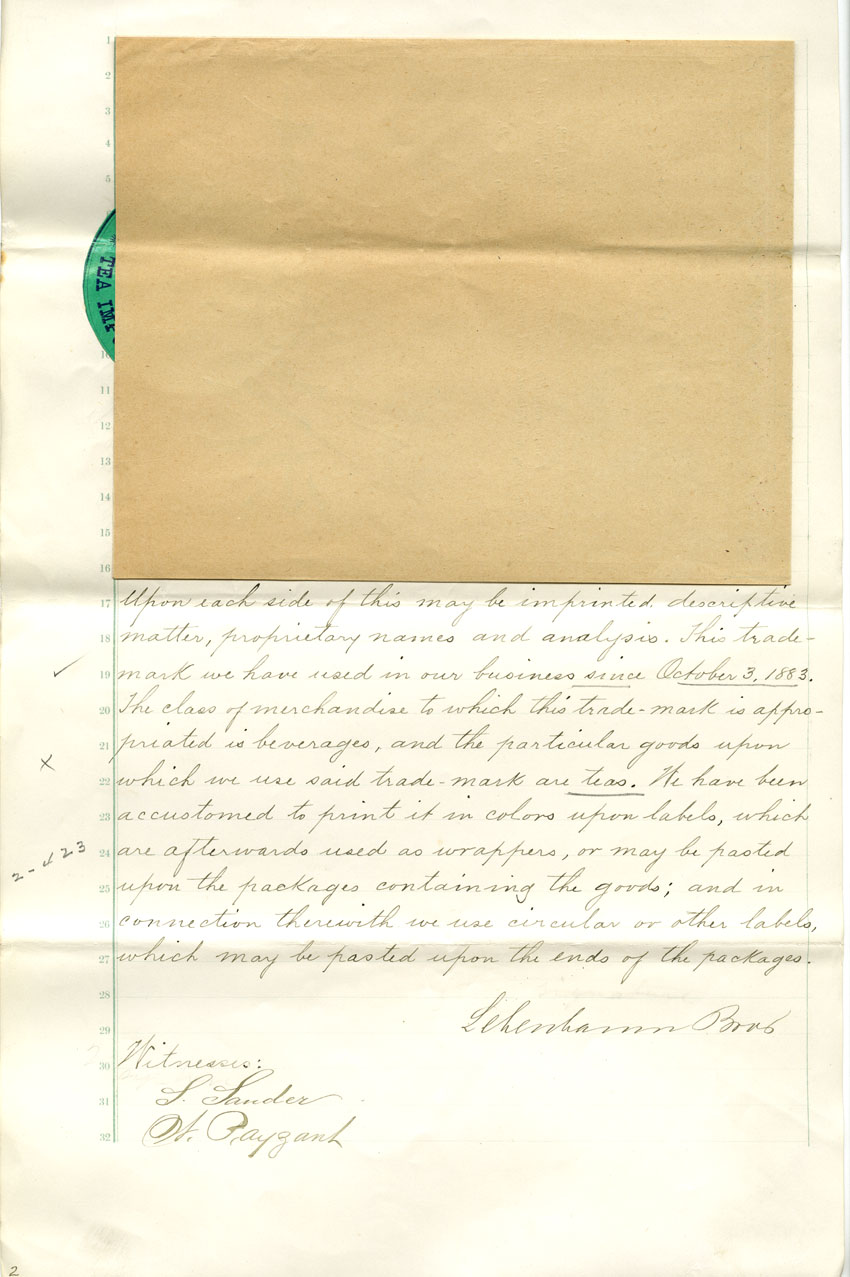 1
2
3
4
5
TEA IM
10
11
12
13
14
15
16
17 Upon each side of this may be imprinted descriptive
18 matter, proprietary names and analysis. This trade-
19 mark we have used in our business since October 3, 1883.
20 The class of merchandise to which this trade-mark is appro-
21 priated is beverages, and the particular goods upon
x
22 which we use said trade-mark are teas. We have been
23 accustomed to print it in colors upon labels, which
24 are afterwards used as wrappers, or may be pasted
25 upon the packages containing the goods; and in
26 connection therewith we use circular or other labels,
27 which may be pasted upon the ends of the packages.
28
29 Bros
30 Witnesses:
31 S. Sander
32 W. Payzant
2